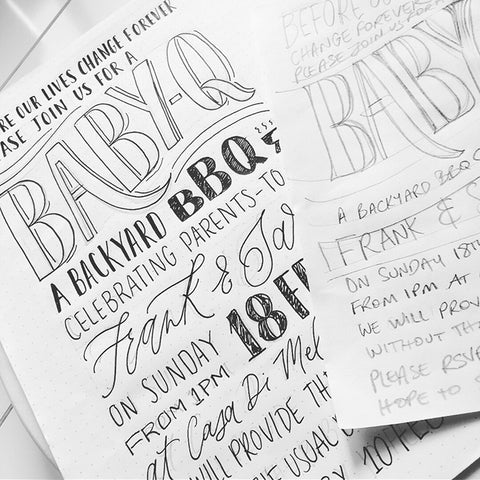 RE OUR LIVES CHANGE FOREVER
ASE JOIN US FOR A
BABY-Q
A BACKYARD BBQ
CELEBRATING PARENTS-TO
Frank &
ON SUNDAY 18 FE
FROM 1PM
at Casa Di Mel
WILL PROVIDE TH
E USUAL
BY 10 FEB
BEFORE OU
CHANGE FOREVER
PLEASE JOIN US FOR A
BABY
A BACKYARD BBQ
FRANK & S
ON SUNDAY 18TH
FROM 1PM AT
WE WILL PROV
WITHOUT TH
PLEASE RSV
HOPE TO